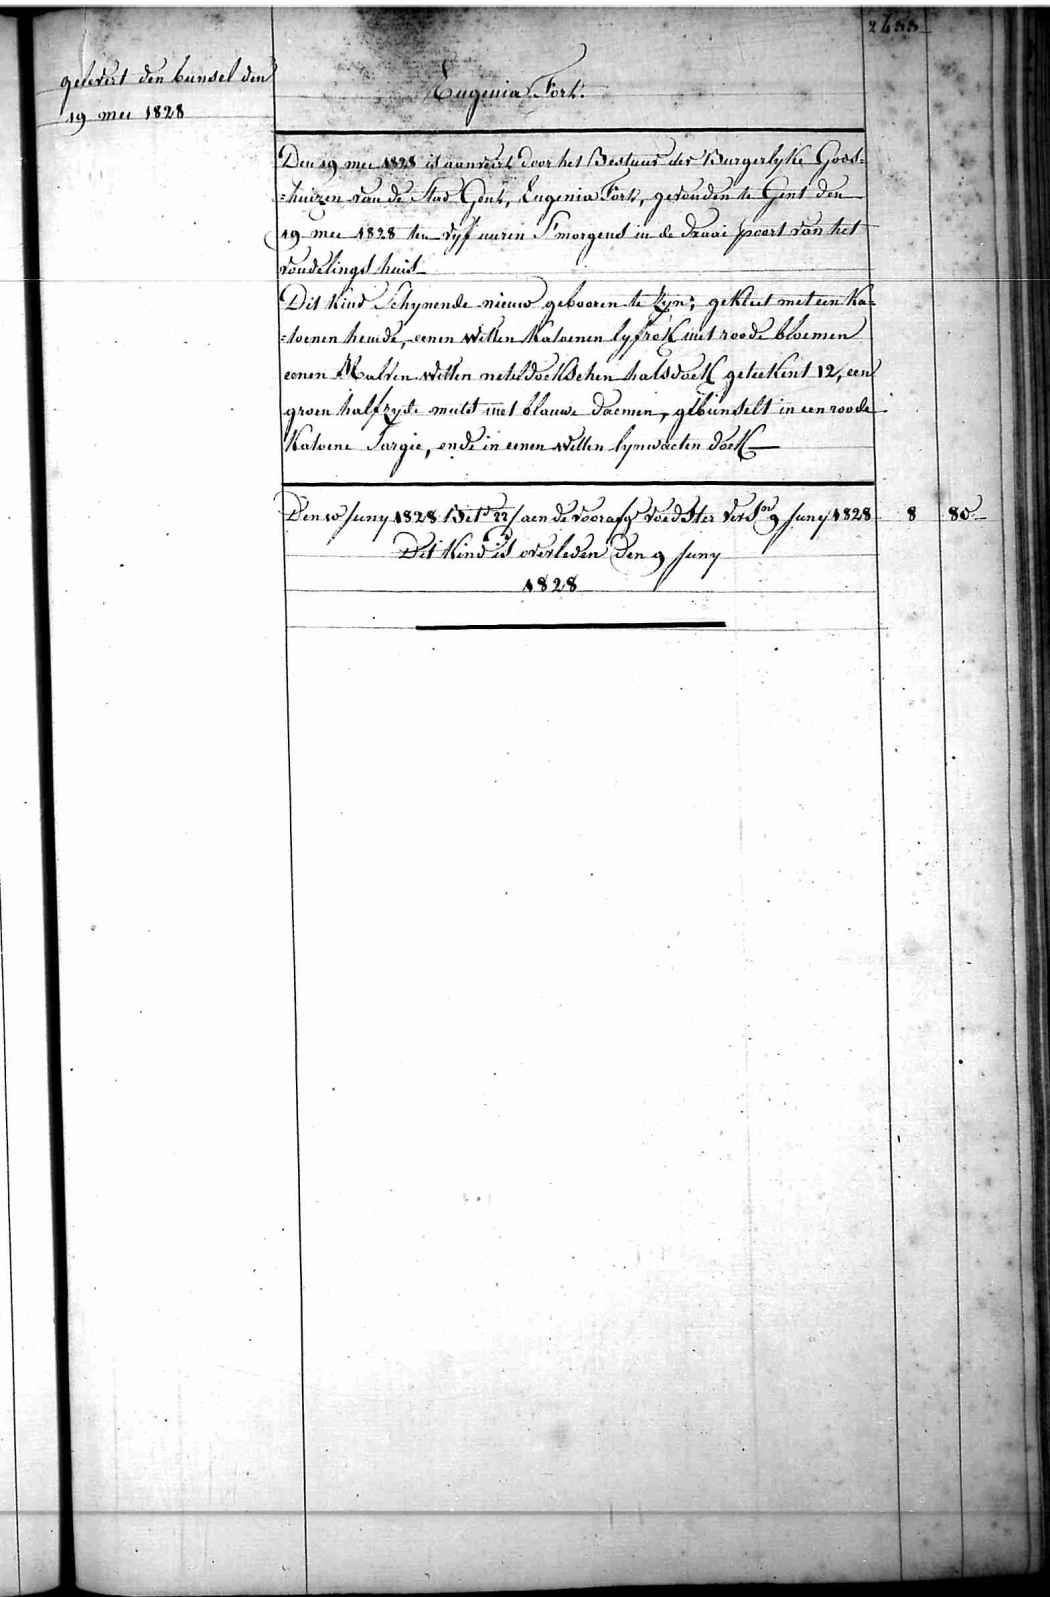 2633
gelevert den bunsel den
19 mei 1828
Eugenia Fork.
Den 19 mei 1828 is aanveirt door het Bestuur der Burgerlyke Gods-
-huizen van de Stad Gent, Eugenia Fork, gevonden te Gent den
19 mei 1828 ten vyf uuren S'morgens in de draai poort van het
vondelings huis
Dit kind Schynende nieuw gebooren te Zyn; gekleet met een ka-
-toenen hemde, eenen witten katoenen lyfrok met roode bloemen
eenen witten neteldoekschen halsdoek geteekent 12, een
groen halfzyde muts met blauwe , gebunselt in een roode
katoene Sargie, ende in eenen witten lynwaeten doek
Den 10 Juny 1828 Bet.d 22/ aen de voorafg. voedster 9 Juny 1828 8 80
Dit kind is overleden den 9 Juny
1828